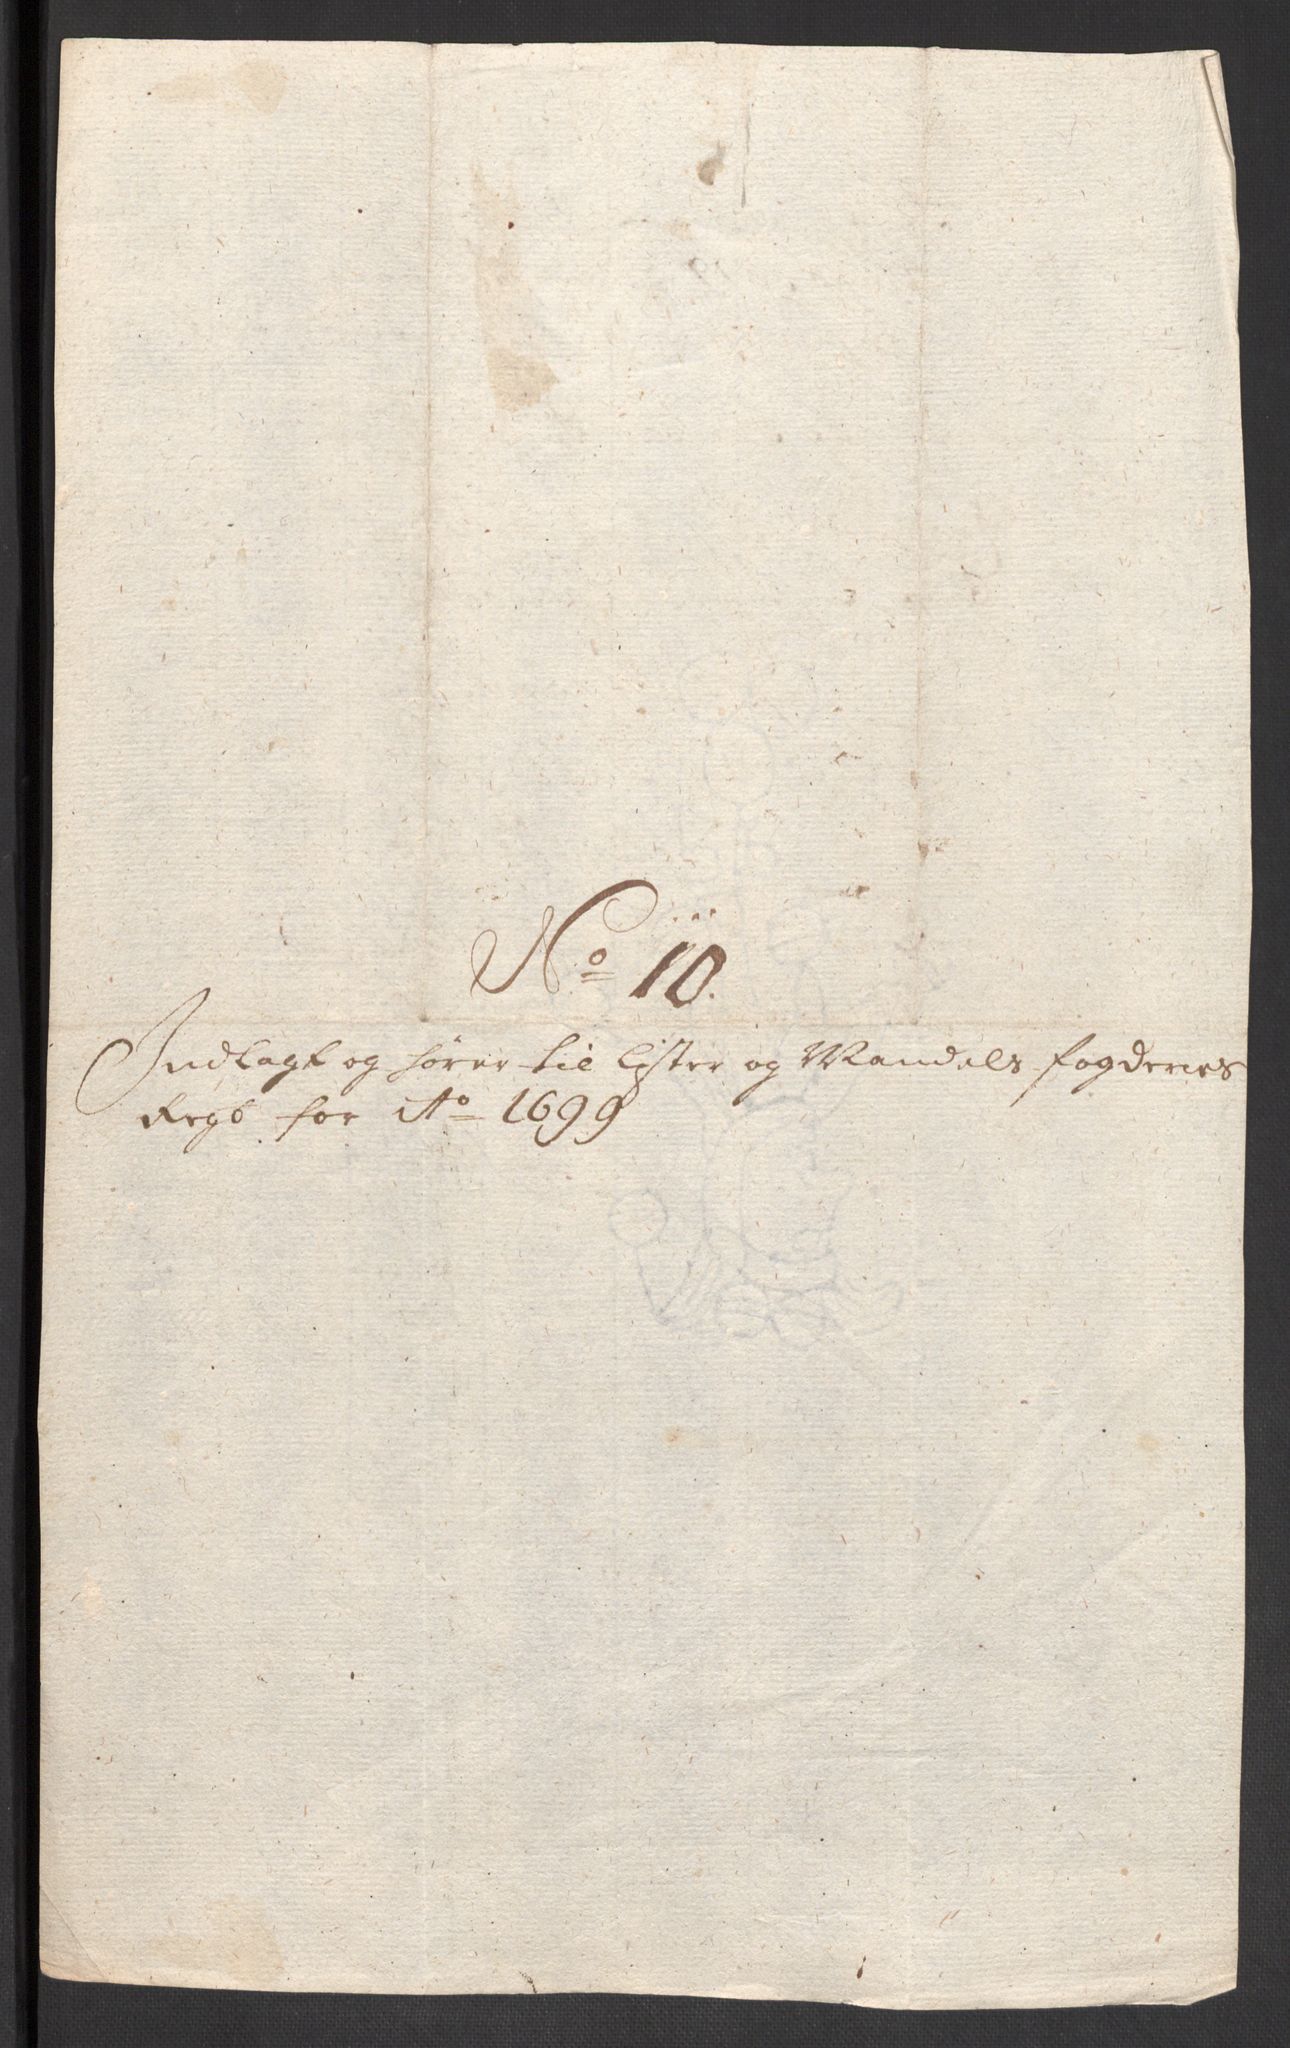 No 10.
Indlagt og hører til Lister og Mandals fogderies
Regb for Ao 1699